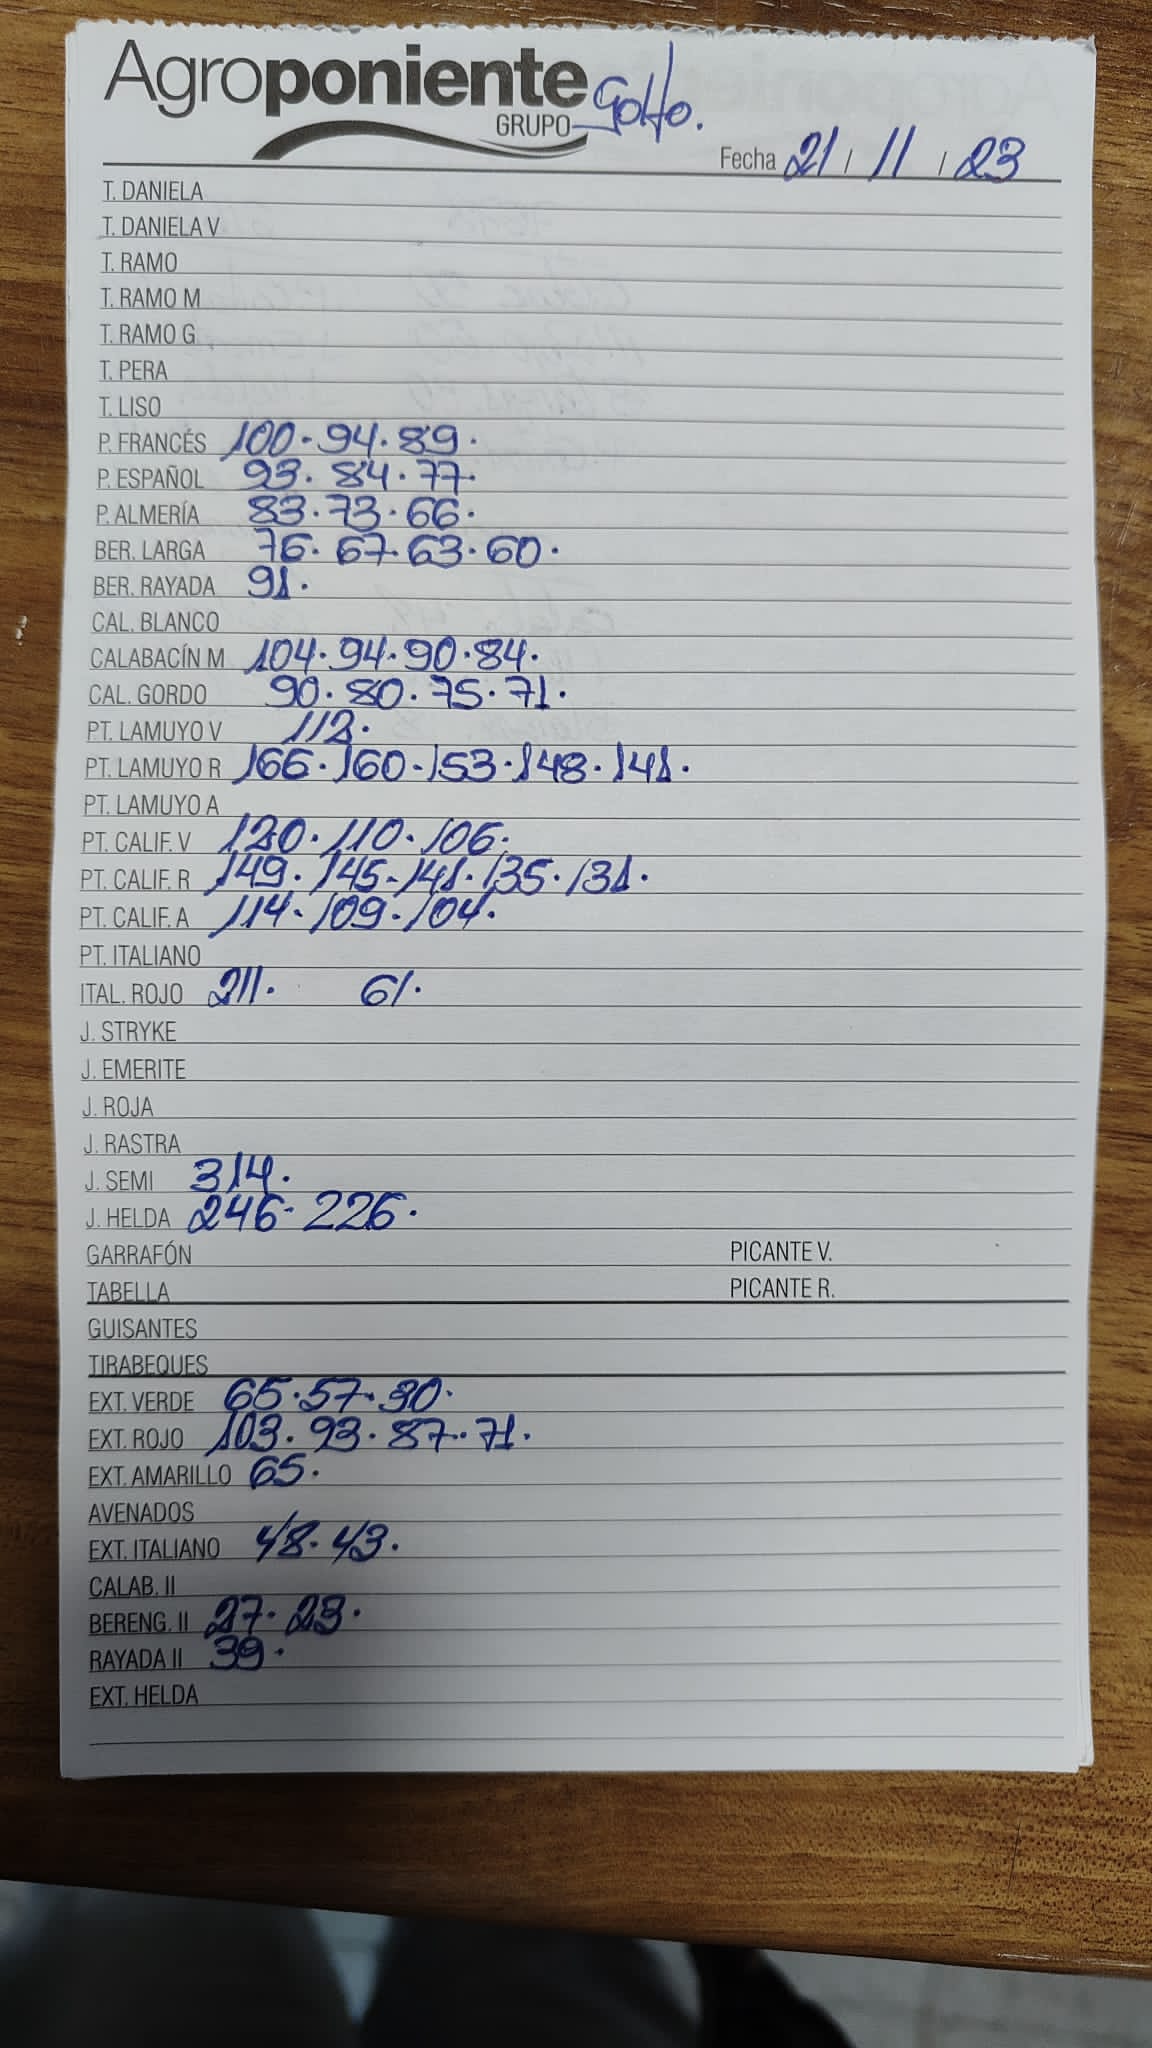 Agroponiente
GRUPO
Golfo.
Fecha 21 / 11 / 23
T. DANIELA
T. DANIELA V
T. RAMO
T. RAMO M
T. RAMO G
T. PERA
T. LISO
P. FRANCÉS 100. 94. 89.
P. ESPAÑOL 93. 84. 77.
P. ALMERÍA 83. 73. 66.
BER. LARGA 76. 67. 63. 60.
BER. RAYADA 91.
CAL. BLANCO
CALABACÍN M 104. 94. 90. 84.
CAL. GORDO 90. 80. 75. 71.
PT. LAMUYO V 112.
PT. LAMUYO R 166. 160. 153. 148. 141.
PT. LAMUYO A
PT. CALIF. V 120. 110. 106.
PT. CALIF. R 149. 145. 141. 135. 131.
PT. CALIF. A 114. 109. 104.
PT. ITALIANO
ITAL. ROJO 211. 61.
J. STRYKE
J. EMERITE
J. ROJA
J. RASTRA
J. SEMI 314.
J. HELDA 246. 226.
GARRAFÓN PICANTE V.
TABELLA PICANTE R.
GUISANTES
TIRABEQUES
EXT. VERDE 65. 57. 30.
EXT. ROJO 103. 93. 87. 71.
EXT. AMARILLO 65.
AVENADOS
EXT. ITALIANO 48. 43.
CALAB. II
BERENG. II 27. 23.
RAYADA II 39.
EXT. HELDA